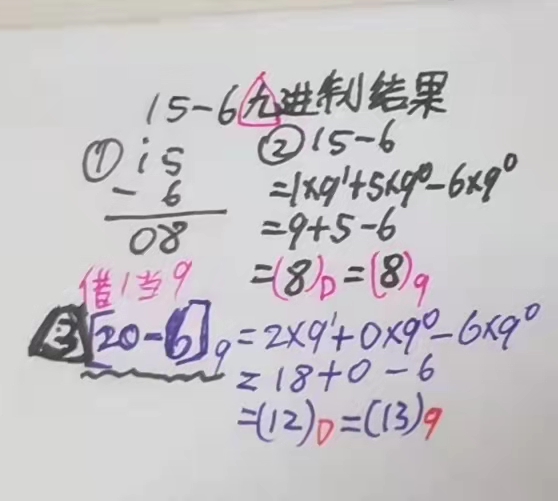 15-6九进制结果
① 15
- 6
08
借1当9
② 15-6
=1×9¹+5×9⁰-6×9⁰
=9+5-6
=(8)D=(8)9
③ [20-6]9=2×9¹+0×9⁰-6×9⁰
=18+0-6
=(12)D=(13)9